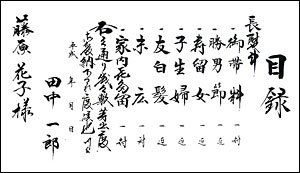 目録
長熨斗
一 御帯料 一封
一 勝男節 一連
一 寿留女 一連
一 子生婦 一連
一 友白髪
一 末広 一対
一 家内喜多留 一封
右之通り幾久敷芽出度
平成 年 月 日
田中一郎
藤原花子様